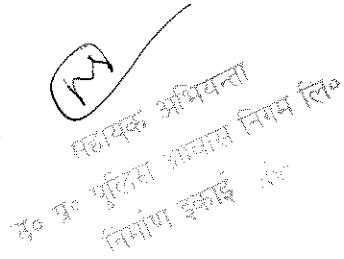 सहायक अभियन्ता
उ० प्र० पुलिस आवास निगम लि०
निर्माण इकाई